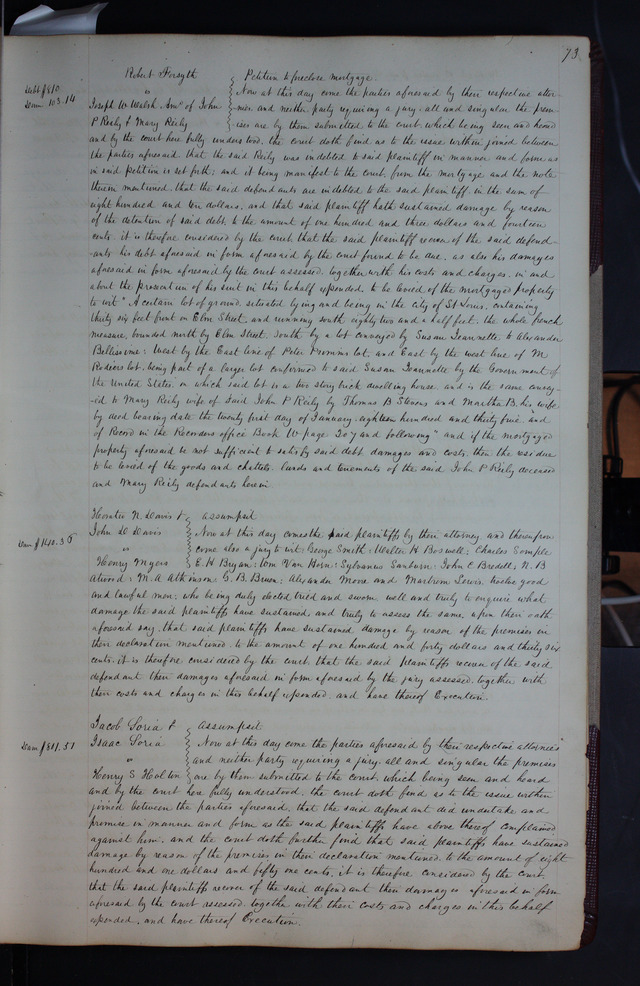 73
Robert Forsyth } Petition to foreclose mortgage.
debt $810
Dam 103.14
vs } Now at this day come the parties aforesaid by their respective attor-
Joseph W. Walsh Admr of John } -nies, and neither party requiring a jury, all and singular the prem-
P Reily & Mary Reily } -ises are by them submitted to the court, which being seen and heard
and by the court here fully understood, the court doth find as to the issue within joined between
the parties aforesaid that the said Reily was indebted to said plaintiff in manner and form as
in said petition is set forth; and it being manifest to the court, from the mortgage and the note
therein mentioned, that the said defendants are indebted to the said plaintiff in the sum of
eight hundred and ten dollars, and that said plaintiff hath sustained damage by reason
of the detention of said debt to the amount of one hundred and three dollars and fourteen
cents. it is therefore considered by the court that the said plaintiff recover of the said defend-
-ants his debt aforesaid in form aforesaid by the court found to be due, as also his damages
aforesaid in form aforesaid by the court assessed, together with his costs and charges, in and
about the prosecution of his suit in this behalf expended, to be levied of the mortgaged property
to wit "A certain lot of ground situated lying and being in the city of St Louis, containing
thirty six feet front on Elm Street, and running south eighty two and a half feet, the whole french
measure, bounded north by Elm Street, South by a lot conveyed by Susan Jeannette to Alexander
Bellissome: West by the East line of Peter lot, and East by the west line of M
Rodiers lot, being part of a larger lot confirmed to said Susan Jeannette by the Government of
the United States, on which said lot is a two story brick dwelling house, and is the same convey-
-ed to Mary Reily wife of said John P Reily by Thomas B Stevens and Martha B. his wife
by deed bearing date the twenty first day of January eighteen hundred and thirty five, and
of Record in the Recorders office Book W page 207 and following" and if the mortgaged
property aforesaid be not sufficient to satisfy said debt, damages and costs, then the residue
to be levied of the goods and chattels, lands and tenements of the said John P Reily deceased
and Mary Reily defendants herein.
Horatio N. Davis & } Assumpsit
John D Davis } Now at this day comes the said plaintiffs by their attorney, and thereupon
Dam $140.36
vs } come also a jury to wit: George Smith: Walter H Boswell: Charles Semple
Henry Myers } E. H. Bryan: Wm Van Horn: Sylvanus Sanburn: John C Bredell; N. B
Atwood: M. A Atkinson: G. B. Buen; Alexander Moore and Martrom Lewis, twelve good
and lawful men, who being duly elected tried and sworn well and truly to enquire what
damage the said plaintiffs have sustained and truly to assess the same, upon their oath
aforesaid say, that said plaintiffs have sustained damage by reason of the premises in
their declaration mentioned to the amount of one hundred and forty dollars and thirty six
cents. it is therefore considered by the court that the said plaintiffs recover of the said
defendant their damages aforesaid in form aforesaid by the jury assessed, together with
their costs and charges in this behalf expended, and have thereof Execution.
Jacob Soria & } Assumpsit
Isaac Soria } Now at this day come the parties aforesaid by their respective attornies
Dam $801.51
vs } and neither party requiring a jury, all and singular the premises
Henry S Holton } are by them submitted to the court, which being seen and heard
and by the court here fully understood, the court doth find as to the issue within
joined between the parties aforesaid, that the said defendant did undertake and
promise in manner and form as the said plaintiffs have above thereof complained
against him, and the court doth further find that said plaintiffs have sustained
damage by reason of the premises in their declaration mentioned to the amount of eight
hundred and one dollars and fifty one cents, it is therefore considered by the court,
that the said plaintiffs recover of the said defendant their damages aforesaid in form
aforesaid by the court assessed, together with their costs and charges in this behalf
expended, and have thereof Execution.